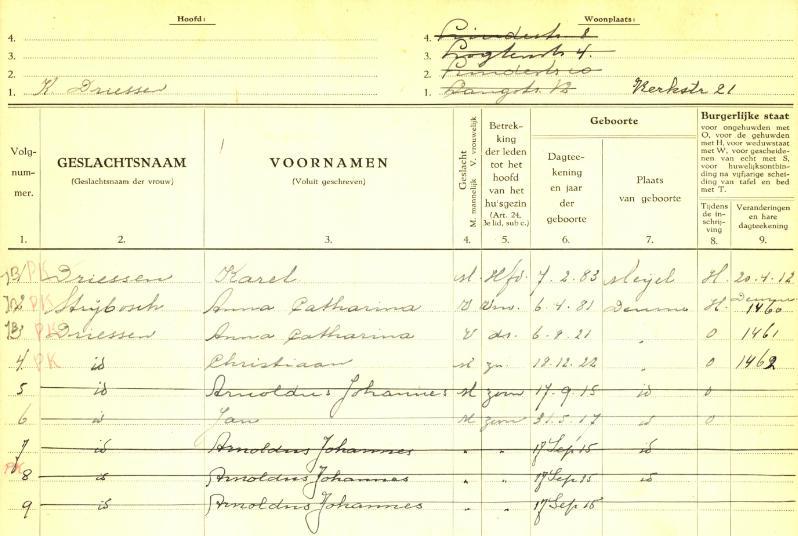 Hoofd: Woonplaats:
4. 4. Lindestr 8
3. 3. Logtenstr 4.
2. 2.
1. K Driessen 1. Kerkstr 21
Volg-
num-
mer.
GESLACHTSNAAM
(Geslachtsnaam der vrouw)
VOORNAMEN
(Voluit geschreven)
Geslacht
M. mannelijk V. vrouwelijk
Betrek-
king
der leden
tot het
hoofd
van het
huisgezin
(Art. 24,
3e lid, sub c.)
Geboorte
Dagtee-
kening
en jaar
der
geboorte
Plaats
van geboorte
Burgerlijke staat
voor ongehuwden met
O, voor de gehuwden
met H, voor weduwstaat
met W, voor gescheide-
nen van echt met S,
voor huwelijksontbin-
ding na vijfjarige schei-
ding van tafel en bed
met T.
Tijdens
de in-
schrij-
ving
Veranderingen
en hare
dagteekening
1. 2. 3. 4. 5. 6. 7. 8. 9.
PK Driessen Karel M Hfd. 7.2.83 Meijel H. 20.4.12
PK Strijbosch Anna Catharina V Vrw. 6.4.81 Deurne H. Deurne 1460
3 PK Driessen Anna Catharina V ds. 6.9.21 " O 1461
4 PK id Christiaan M zn. 18.12.22 " O 1462
5 id Arnoldus Johannes M zoon 17.9.15 id O
6 id Jan M zoon 31.5.17 id O
7 id Arnoldus Johannes " " 17 Sep 15 id
PK 8 id Arnoldus Johannes " " 17 Sep 15 id
9 id Arnoldus Johannes " " 17 Sep 15